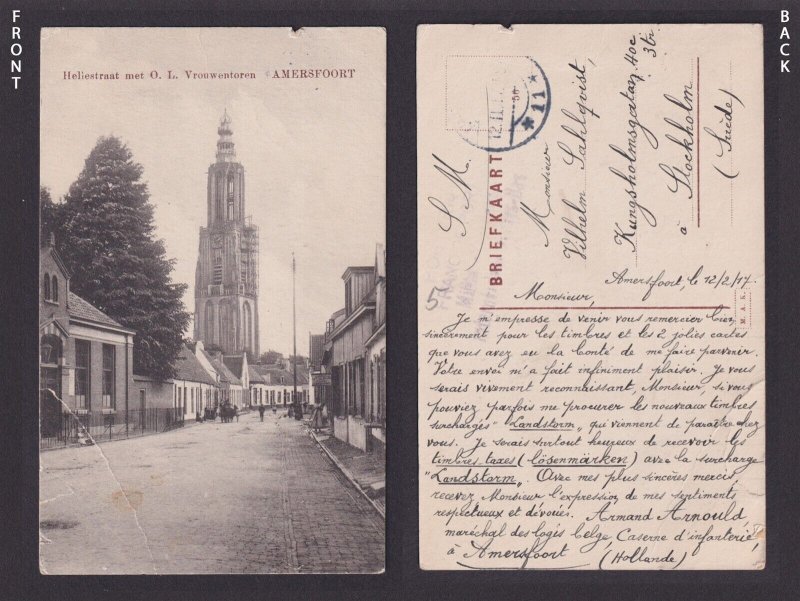 FRONT
Heliestraat met O. L. Vrouwentoren AMERSFOORT
BACK
BRIEFKAART
12.II.
11
S. M.
Monsieur
Vilhelm Sahlqvist,
Kungsholmsgatan 40c
3tr
à Stockholm
(Suède)
Amersfoort, le 12/2/17.
Monsieur,
Je m'empresse de venir vous remercier bien
sincèrement pour les timbres et les 2 jolies cartes
que vous avez eu la bonté de me faire parvenir.
Votre envoi m'a fait infiniment plaisir. Je vous
serais vivement reconnaissant, Monsieur, si vous
pouviez parfois me procurer les nouveaux timbres
surchargés "Landstorm" qui viennent de paraître chez
vous. Je serais surtout heureux de recevoir les
timbres taxes (Lösenmärken) avec la surcharge
"Landstorm". Avec mes plus sincères mercis,
recevez Monsieur l'expression de mes sentiments
respectueux et dévoués. Armand Arnould,
maréchal des logis belge, Caserne d'infanterie,
à Amersfoort (Hollande)